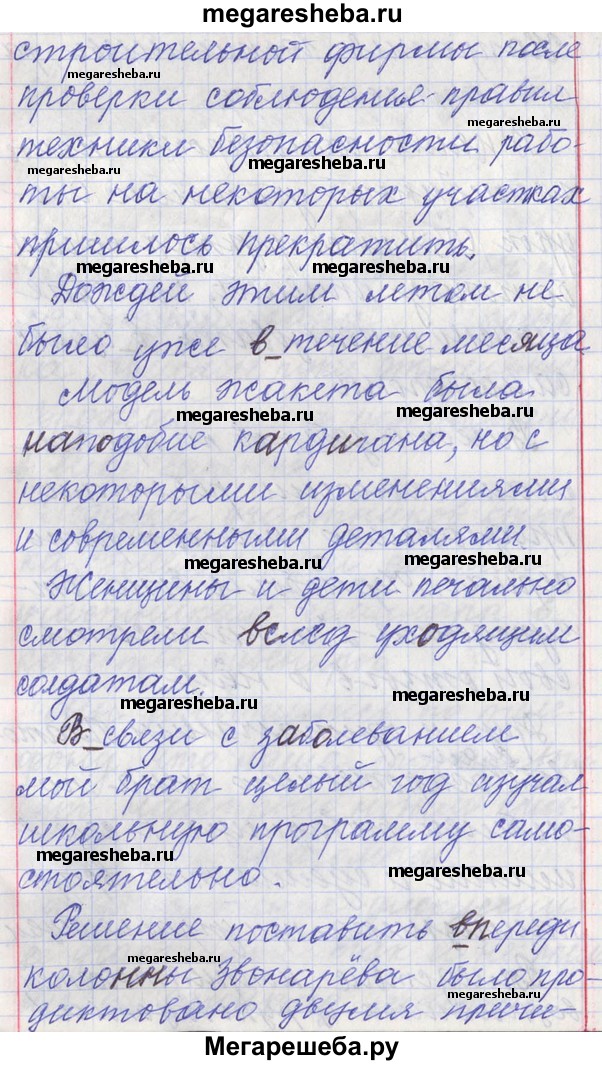 Мегарешеба.ру
megaresheba.ru
строительной фирмы после
megaresheba.ru
megaresheba.ru
проверки соблюдения правил
megaresheba.ru
техники безопасности рабо-
megaresheba.ru
ты на некоторых участках
пришлось прекратить.
megaresheba.ru
megaresheba.ru
Дождей этим летом не
было уже в_течение месяца
Модель жакета была
megaresheba.ru
megaresheba.ru
наподобие кардигана, но с
некоторыми изменениями
и современными деталями.
megaresheba.ru
megaresheba.ru
Женщины и дети печально
смотрели вслед уходящим
солдатам.
megaresheba.ru
megaresheba.ru
В_связи с заболеванием
мой брат целый год изучал
школьную программу само-
megaresheba.ru
megaresheba.ru
стоятельно.
Решение поставить впереди
megaresheba.ru
колонны Звонарёва было про-
megaresheba.ru
диктовано двумя причи-
Мегарешеба.ру